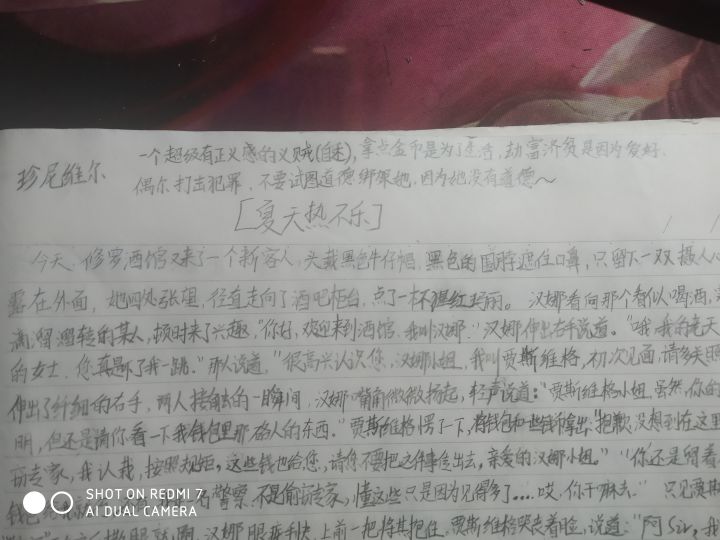 一个超级有正义感的义贼(自述),拿点金币是为了生活,劫富济贫是因为爱好.
珍尼维尔
偶尔打击犯罪.不要试图道德绑架她,因为她没有道德~
[夏天热不乐]
今天,修罗酒馆又来了一个新客人,头戴黑色牛仔帽,黑色的围脖遮住口鼻,只留下一双摄人心
露在外面,她四处张望,径直走向了酒吧柜台,点了一杯血红玛丽。汉娜看向那个看似喝酒,实
滴溜溜转的某人,顿时来了兴趣,"你好,欢迎来到酒馆,我叫汉娜."汉娜伸出右手说道。"哦,我的老天
的女士,您真是吓了我一跳。"那人说道,"很高兴认识您,汉娜小姐,我叫贾斯维格,初次见面,请多关照
伸出了纤细的右手,两人接触的一瞬间,汉娜嘴角微微扬起,轻声说道:"贾斯维格小姐,虽然,你的
明,但还是请你看一下我钱包里那磕人的东西。"贾斯维格愣了下,将钱包和些钱币拿出,"抱歉,没想到在这里
窃专家,我认栽,按照规矩,这些钱也给您,请您不要把这件事传出去,亲爱的汉娜小姐。""你还是留着
钱包 警察,不是偷窃专家,懂这些只是因为见得多了....哎,你干嘛去."只见贾斯
撒腿就跑,汉娜眼疾手快,上前一把将其抱住,贾斯维格哭丧着脸,说道:"阿Sir,我
SHOT ON REDMI 7
AI DUAL CAMERA